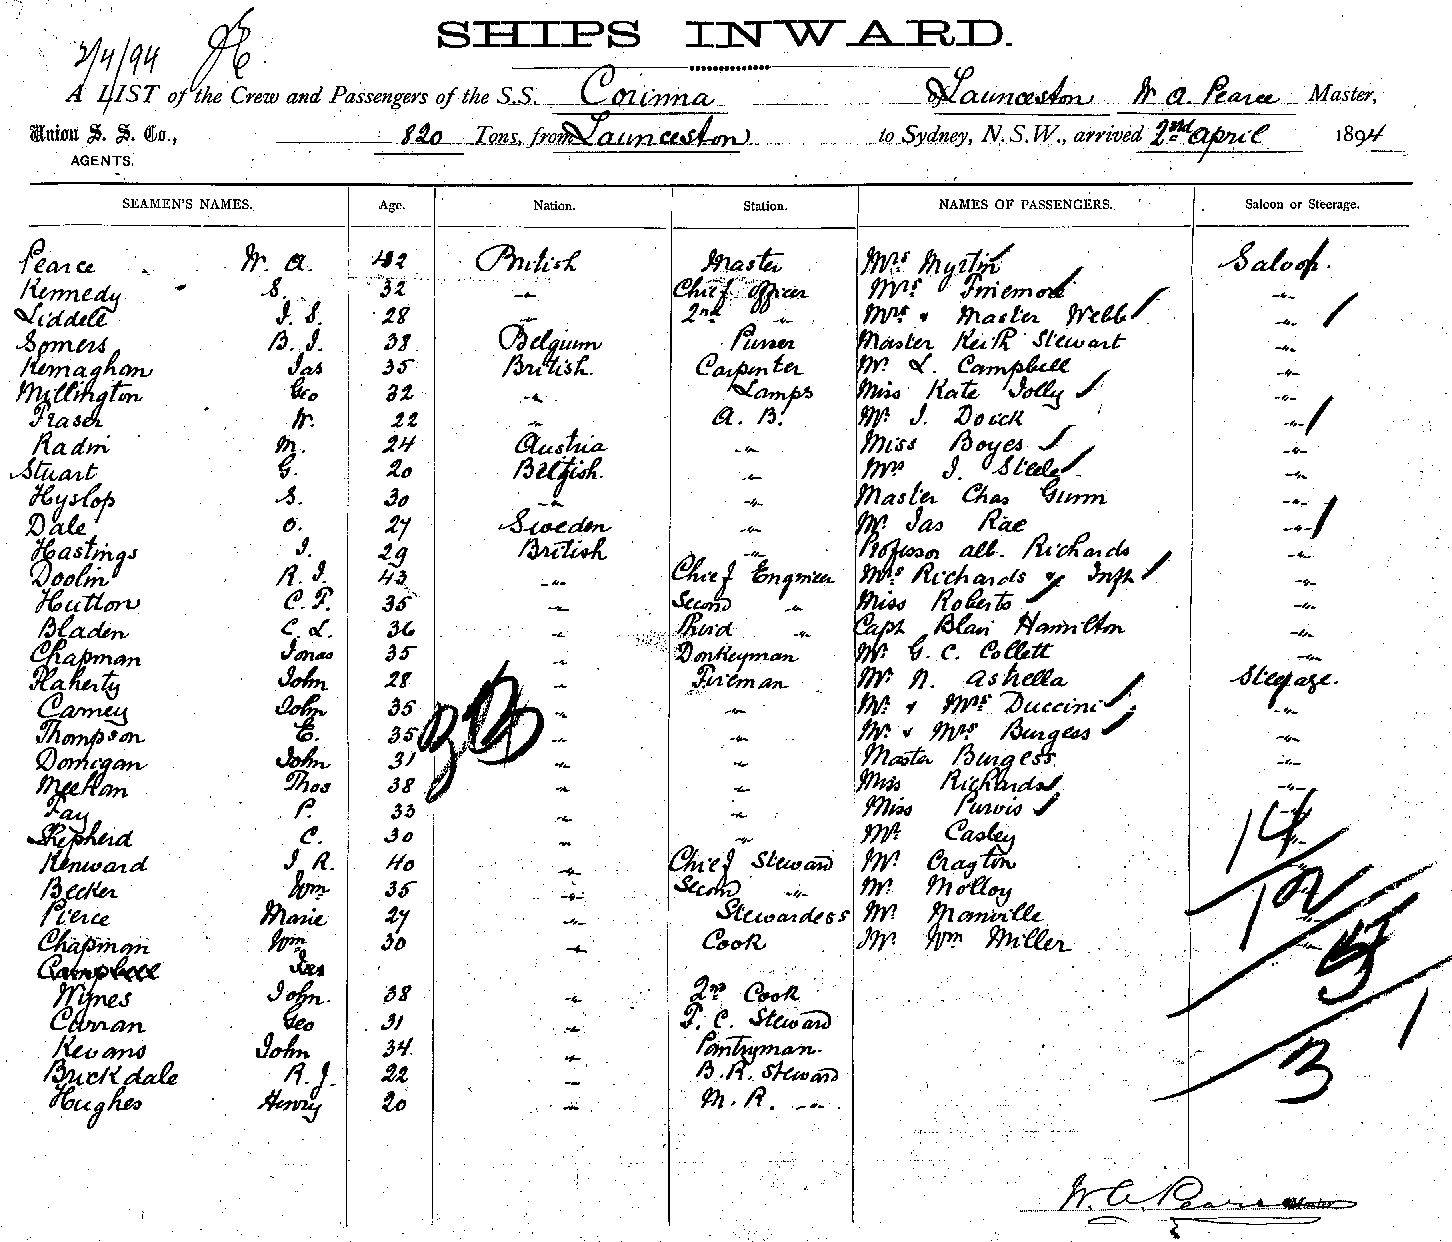 SHIPS INWARD.
2/4/94
A LIST of the Crew and Passengers of the S.S. Corinna of Launceston W. A. Pearce Master,
Union S. S. Co., AGENTS. 820 Tons, from Launceston to Sydney, N.S.W., arrived 2nd April 1894
SEAMEN'S NAMES. Age. Nation. Station. NAMES OF PASSENGERS. Saloon or Steerage.
Pearce W. A. 42 British Master Mrs Myrtin Saloon.
Kennedy S. 32 -"- Chief Officer Mrs Finemore -"-
Liddell J. S. 28 -"- 2nd -"- Mrs & Master Webb -"-
Somers B. J. 38 Belgium Purser Master Keith Stewart -"-
Kernaghan Jas 35 British. Carpenter Mr. L. Campbell -"-
Millington Geo 32 -"- Lamps Miss Kate Jolly -"-
Fraser W. 22 -"- A. B. Mr. J. Doick -"-
Radin M. 24 Austria -"- Miss Boyes -"-
Stuart G. 20 British. -"- Mrs J. Steele -"-
Hyslop S. 30 -"- -"- Master Chas Gunn -"-
Dale O. 27 Sweden -"- Mr. Jas Rae -"-
Hastings J. 29 British -"- Professor Alb. Richards -"-
Doolin R. J. 43 -"- Chief Engineer Mrs Richards & Inft -"-
Hutton C. P. 35 -"- Second -"- Miss Roberts -"-
Bladen C. L. 36 -"- Third -"- Capt Blair Hamilton -"-
Chapman Jonas 35 -"- Donkeyman Mr. G. C. Collett -"-
Flaherty John 28 -"- Fireman Mr. N. Ashella Steerage.
Carney John 35 -"- -"- Mr. & Mrs Duccini -"-
Thompson E. 35 -"- -"- Mr. & Mrs Burgess -"-
Dornigan John 31 -"- -"- Master Burgess -"-
Meehan Thos 38 -"- -"- Miss Richards -"-
Fay P. 33 -"- -"- Miss Purvis -"-
Shepherd C. 30 -"- -"- Mr. Casley -"-
Kenward J. R. 40 -"- Chief Steward Mr. Cragtin
Becker Wm 35 -"- Second -"- Mr. Molloy
Pierce Marie 27 -"- Stewardess Mr. Manville
Chapman Wm 30 -"- Cook Mr. Wm Miller
Campbell Jas
Wynes John. 38 -"- 2nd Cook
Curran Geo 31 -"- F. C. Steward
Kevans John 34 -"- Pantryman.
Brickdale R. J. 22 -"- B. R. Steward
Hughes Henry 20 -"- M. R. -"-
14
3
W. A. Pearce